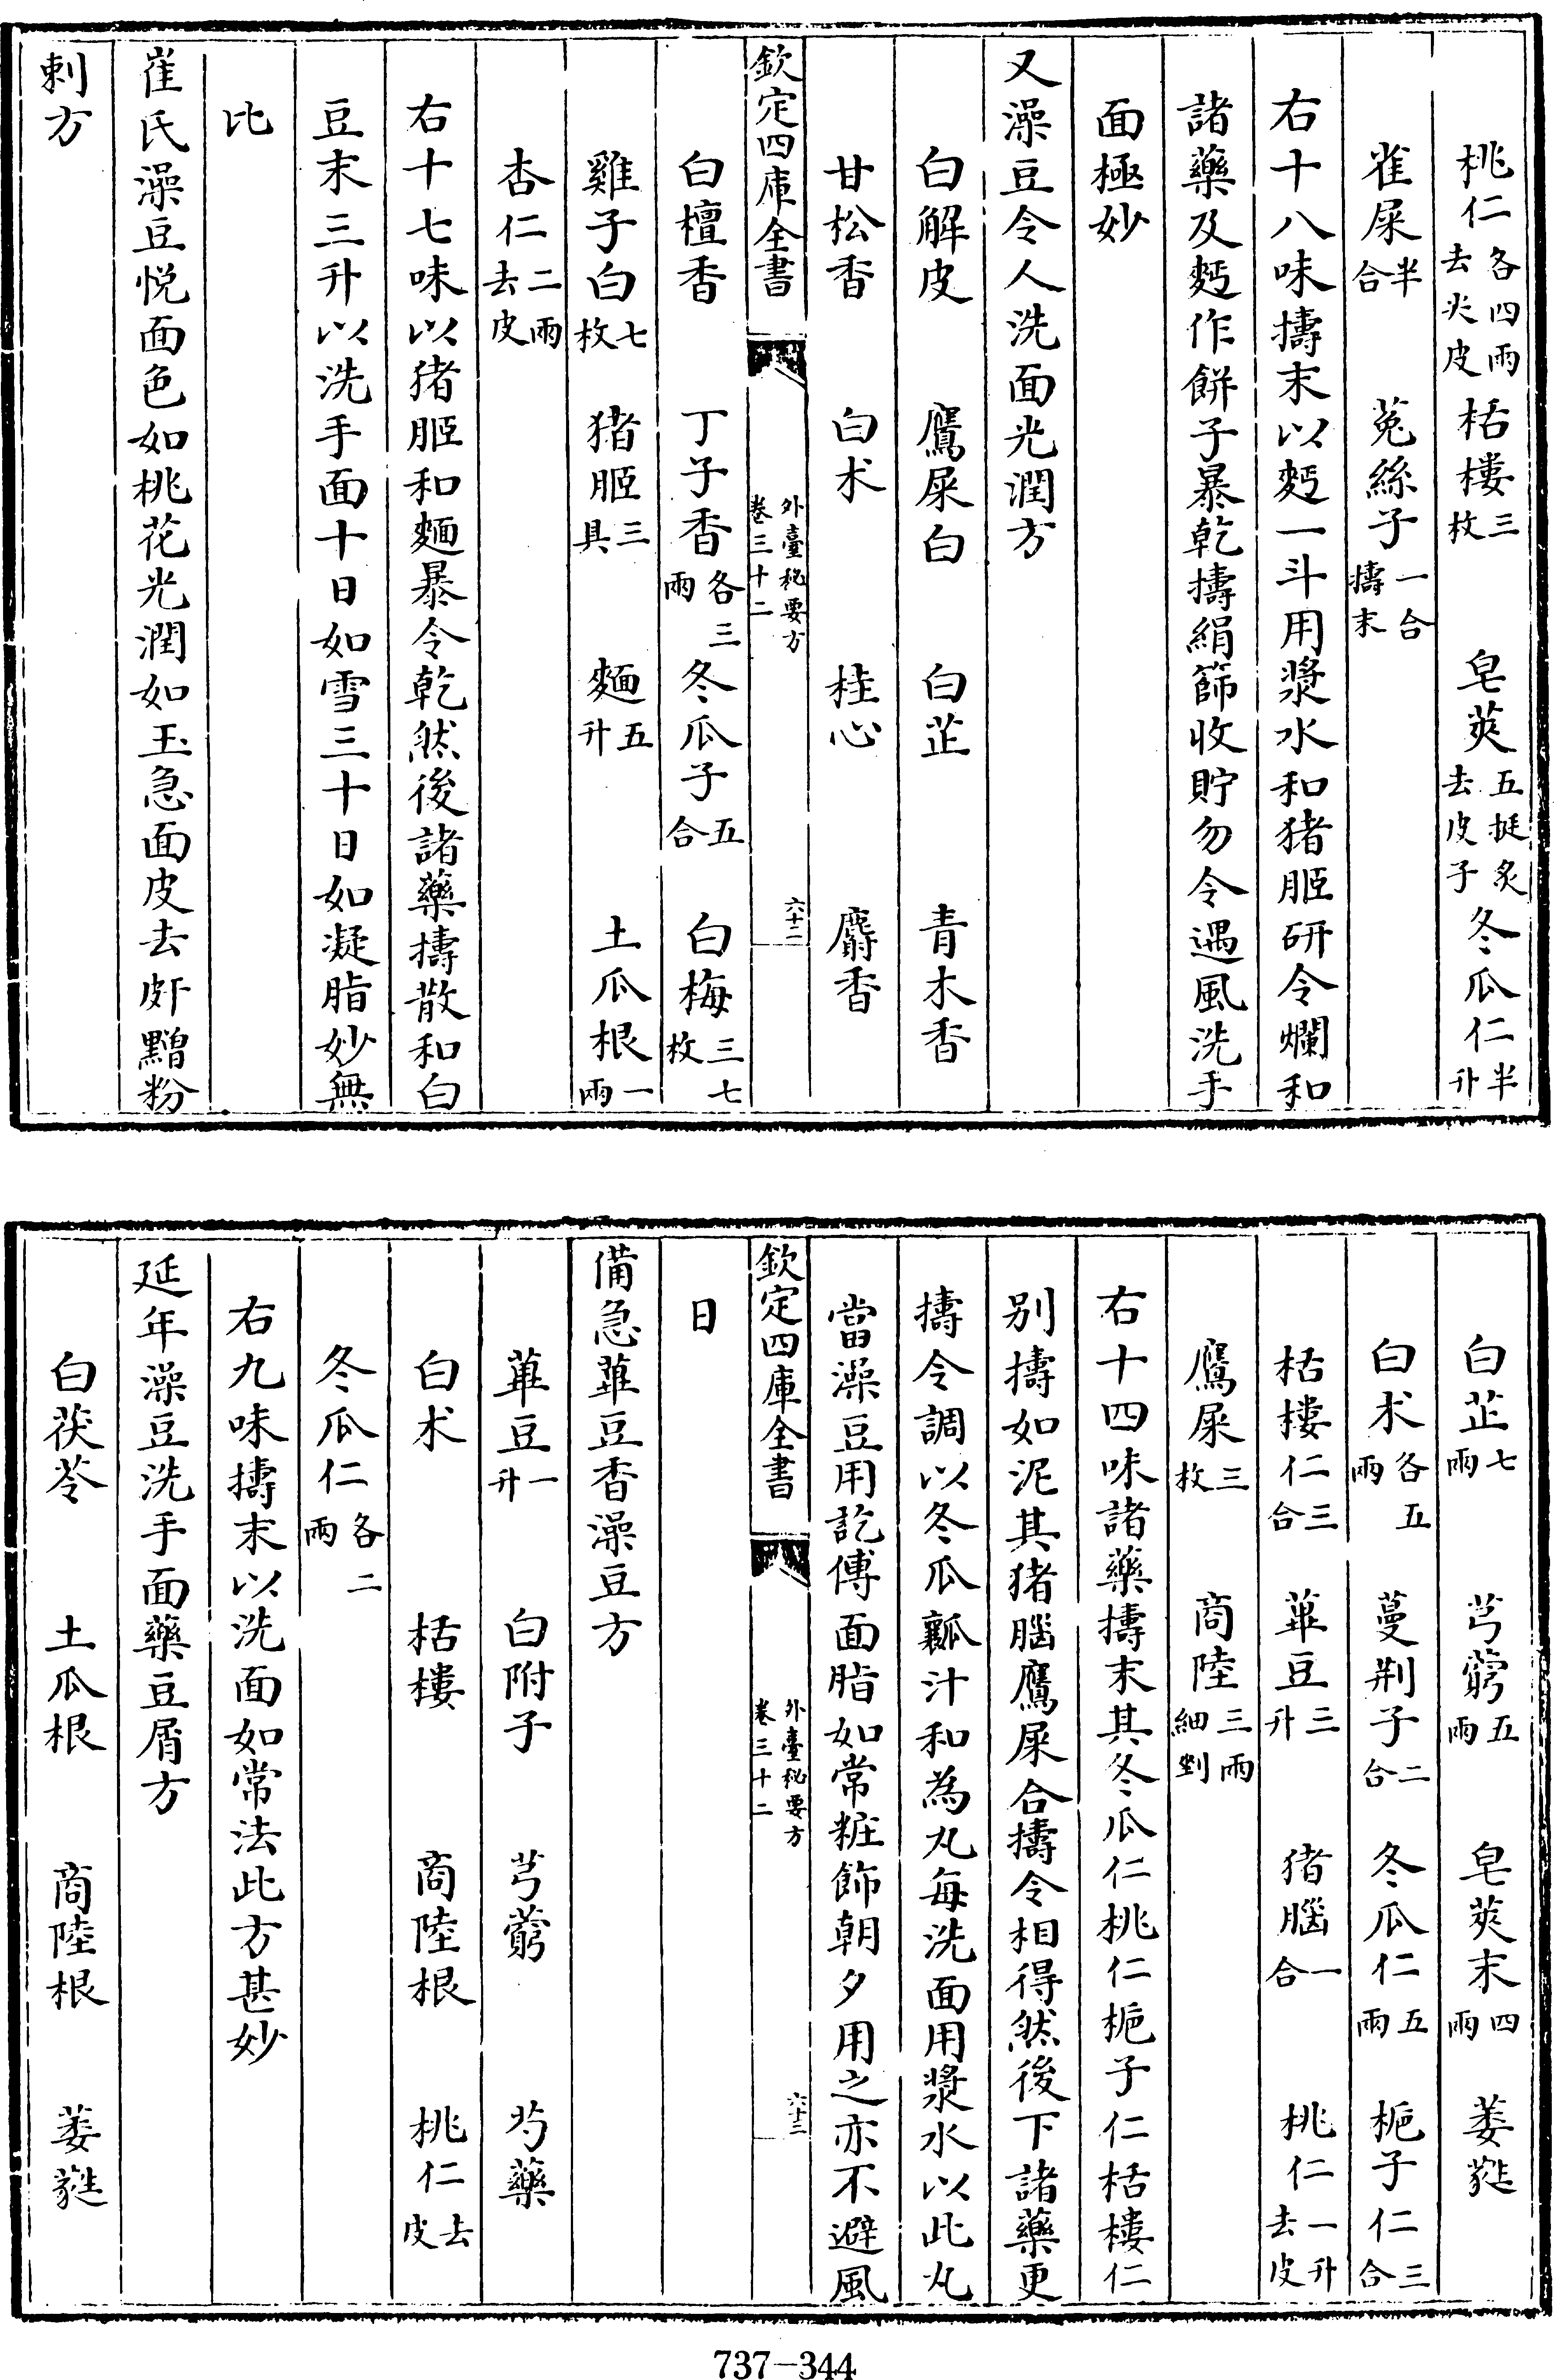 桃仁各四兩去尖皮 栝樓三枚 皂莢五挺炙去皮子 冬瓜仁半升
雀屎半合 菟絲子一合擣末
右十八味擣末以麫一斗用漿水和猪胰研令爛和
諸藥及麫作餅子暴乾擣絹篩收貯勿令遇風洗手
面極妙
又澡豆令人洗面光潤方
白解皮 鷹屎白 白芷 青木香
甘松香 白朮 桂心 麝香
欽定四庫全書 外臺秘要方卷三十二 六十二
白檀香 丁子香各三兩 冬瓜子五合 白梅三七枚
雞子白七枚 猪胰三具 麵五升 土瓜根一兩
杏仁二兩去皮
右十七味以猪胰和麵暴令乾然後諸藥擣散和白
豆末三升以洗手面十日如雪三十日如凝脂妙無
比
崔氏澡豆悅面色如桃花光潤如玉急面皮去皯䵴粉
刺方
白芷七兩 芎藭五兩 皂莢末四兩 萎蕤
白朮各五兩 蔓荆子二合 冬瓜仁五兩 梔子仁三合
栝樓仁三合 蓽豆三升 猪腦一合 桃仁一升去皮
鷹屎三枚 商陸三兩細剉
右十四味諸藥擣末其冬瓜仁桃仁梔子仁栝樓仁
别擣如泥其猪腦鷹屎合擣令相得然後下諸藥更
擣令調以冬瓜瓤汁和為丸每洗面用漿水以此丸
當澡豆用訖傅面脂如常粧飾朝夕用之亦不避風
欽定四庫全書 外臺秘要方卷三十二 六十三
日
備急蓽豆香澡豆方
蓽豆一升 白附子 芎藭 芍藥
白朮 栝樓 商陸根 桃仁去皮
冬瓜仁各二兩
右九味擣末以洗面如常法此方甚妙
延年澡豆洗手面藥豆屑方
白茯苓 土瓜根 商陸根 萎蕤
737-344